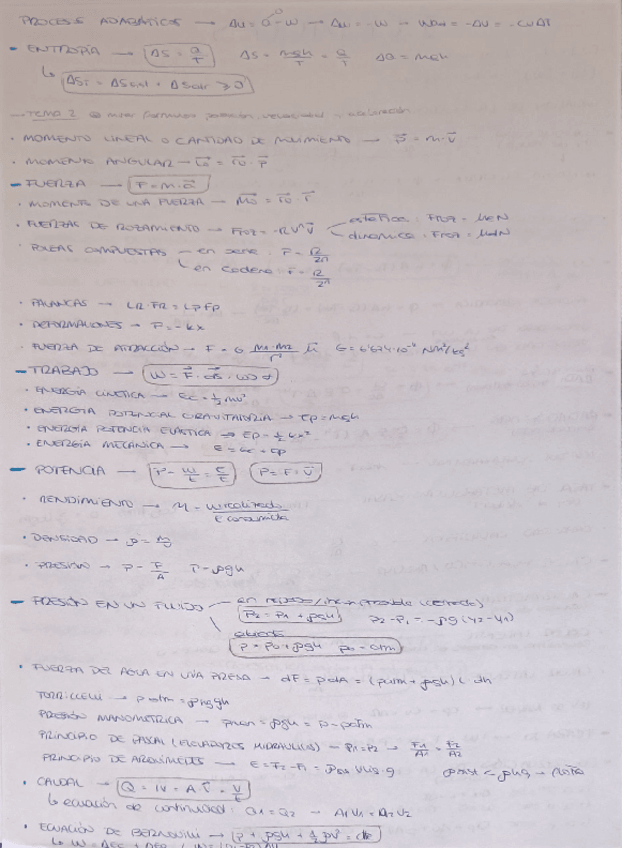 PROCESOS ADIABÁTICOS → ΔU = Q - W → ΔU = -W → Wad = -ΔU = -CvΔT
- ENTROPÍA → ΔS = Q/T ΔS = mgh/T = Q/T ΔQ = mgh
↳ ΔST = ΔScal + ΔSalr ≥ 0
- TEMA 2
· MOMENTO LINEAL O CANTIDAD DE MOVIMIENTO → p = m·v
· MOMENTO ANGULAR → L0 = r0 · p
- FUERZA → F = m·a
· MOMENTO DE UNA FUERZA → M0 = r0 · F
· FUERZAS DE ROZAMIENTO → Froz = -kvⁿv
estática: Froz = μeN
dinámica: Froz = μdN
· POLEAS COMPUESTAS
en serie: F = R/2n
en cadena: F = R/2n
· PALANCAS → LR·FR = LP FP
· DEFORMACIONES → F = -kx
· FUERZA DE ATRACCIÓN → F = G m1·m2/r² G = 6'674·10⁻¹¹ Nm²/kg²
- TRABAJO → W = F · ds · cos α
· ENERGÍA CINÉTICA → Ec = ½mv²
· ENERGÍA POTENCIAL GRAVITATORIA → Ep = mgh
· ENERGÍA POTENCIA ELÁSTICA → Ep = ½kx²
· ENERGÍA MECÁNICA → E = Ec + Ep
- POTENCIA → P = W/t = E/t P = F · v
· RENDIMIENTO → η = W realizado/E consumida
· DENSIDAD → ρ = m/V
· PRESIÓN → P = F/A P = ρgh
- PRESIÓN EN UN FLUIDO
en reposo/incompresible (cerrado)
P2 = P1 + ρgh P2 - P1 = -ρg(y2 - y1)
abierto
P = P0 + ρgh P0 = atm
· FUERZA DEL AGUA EN UNA PRESA → dF = p dA = (patm + ρgh) L dh
TORRICELLI → p atm = ρHg gh
PRESIÓN MANOMÉTRICA → pman = ρgh = p - patm
PRINCIPIO DE PASCAL (ELEVADORES HIDRÁULICOS) → P1 = P2 → F1/A1 = F2/A2
PRINCIPIO DE ARQUÍMEDES → E = F2 - F1 =
· CAUDAL → Q = IV = A·v = V/t
↳ ecuación de continuidad: Q1 = Q2 → A1V1 = A2V2
· ECUACIÓN DE BERNOULLI → p + ρgh + ½ρv² = cte
↳ W = ΔEc + ΔEp